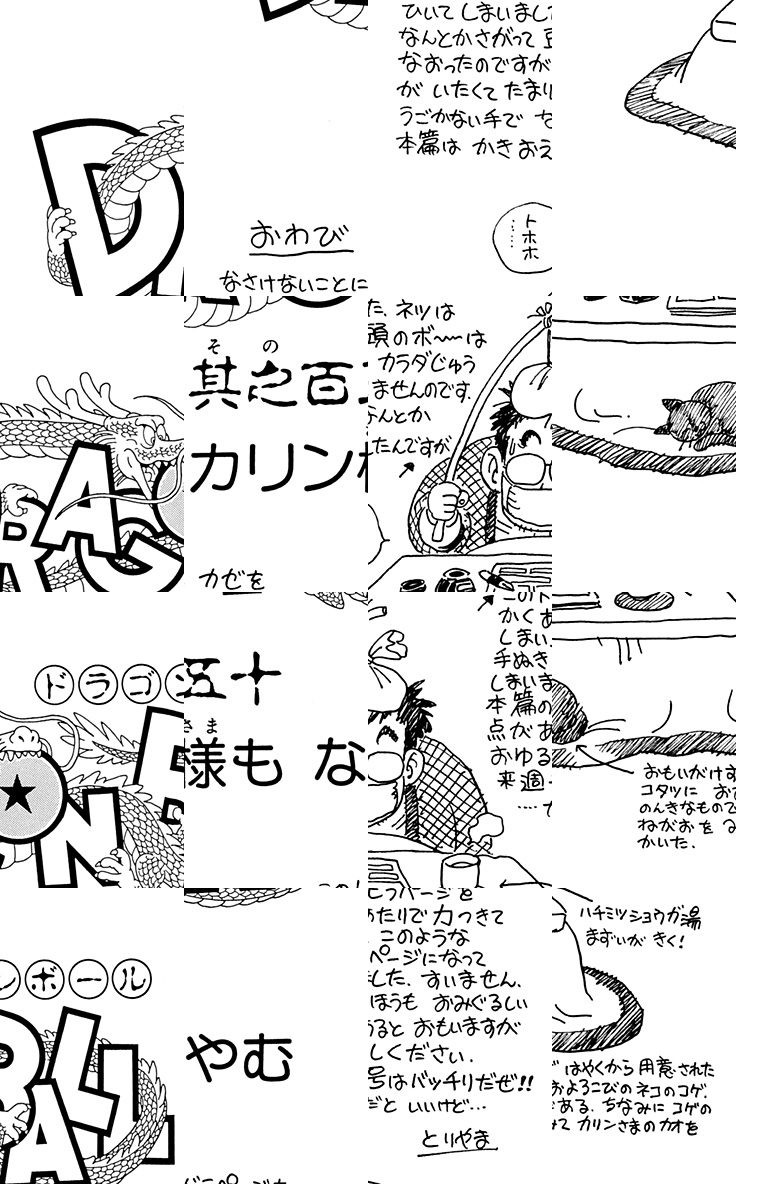 ドラゴンボール
DRAGON BALL
その
其之百五十
さま
カリン様も なやむ
おわび
なさけないことに カゼを
ひいてしまいました、ネツは
なんとかさがって 頭のボ〜〜は
なおったのですが カラダじゅう
が いたくて たまりませんのです。
うごかない手で なんとか
本篇は かきおえたんですが
このトビラページを
かくあたりで力つきて
しまい、このような
手ぬきページになって
しまいました。すいません。
本篇のほうも おみぐるしい
点があると おもいますが
おゆるしください。
来週号はバッチリだぜ!!
……だと いいけど…
とりやま
トホホ……
ハチミツショウガ湯
まずいが きく!
おもいがけず はやくから 用意された
コタツに おおよろこびのネコのコゲ。
のんきなものである。ちなみに コゲの
ねがおを みて カリンさまのカオを
かいた。